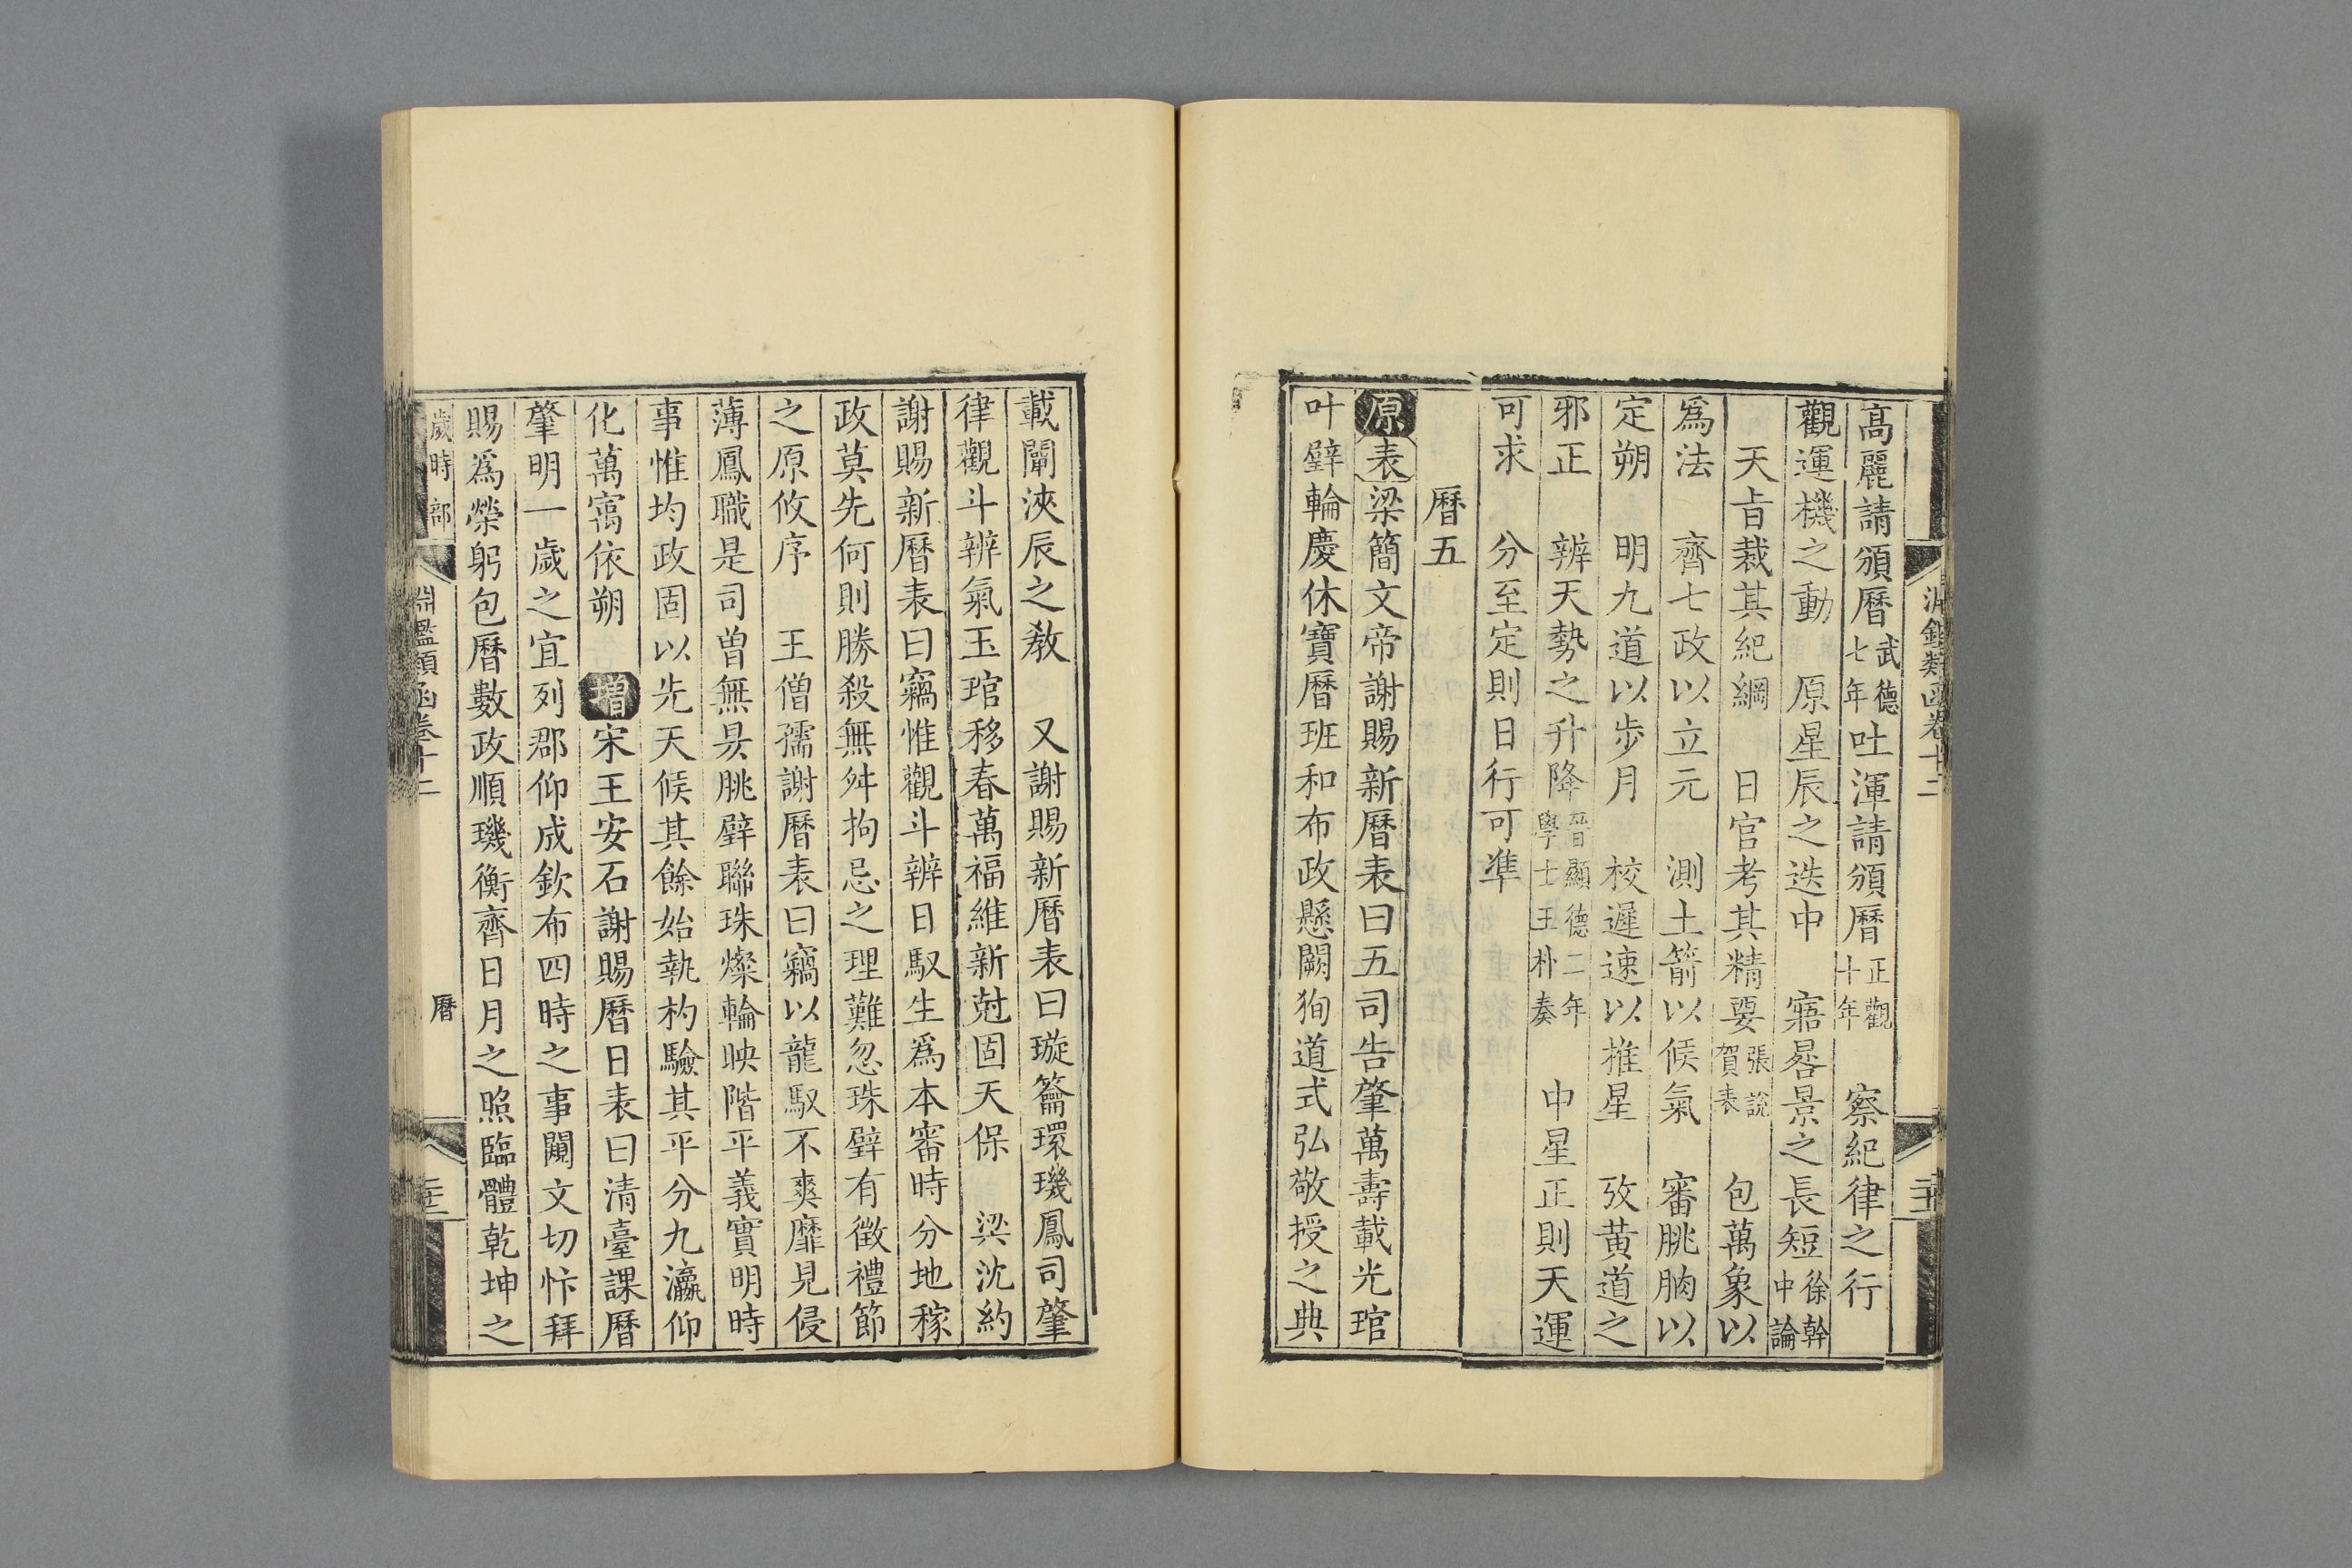 淵鑑類函卷十二
高麗請頒曆武德七年吐渾請頒曆正觀十年　察紀律之行
觀運機之動　原星辰之迭中　寤晷景之長短徐幹中論
天旨裁其紀綱　日官考其精要張說賀表　包萬象以
爲法　齊七政以立元　測土箭以候氣　審朓朒以
定朔　明九道以步月　校遲速以推星　攷黄道之
邪正　辨天勢之升降晉顯德二年學士王朴奏　中星正則天運
可求　分至定則日行可準
曆五
原表梁簡文帝謝賜新曆表曰五司告肇萬壽載光琯
叶璧輪慶休寶曆班和布政懸闕狥道式弘敬授之典
載闡浹辰之敎　又謝賜新曆表曰璇籥環璣鳳司肇
律觀斗辨氣玉琯移春萬福維新尅固天保　梁沈約
謝賜新曆表曰竊惟觀斗辨日馭生爲本審時分地稼
政莫先何則勝殺無舛拘忌之理難忽珠璧有徵禮節
之原攸序　王僧孺謝曆表曰竊以龍馭不爽靡見侵
薄鳳職是司曽無昃朓璧聯珠燦輪映階平義實明時
事惟均政固以先天候其餘始執杓驗其平分九瀛仰
化萬㝢依朔　增宋王安石謝賜曆日表曰清臺課曆
肇明一歲之宜列郡仰成欽布四時之事闓文切忭拜
賜爲榮躬包曆數政順璣衡齊日月之照臨體乾坤之
歲時部　淵鑑類函卷十二　曆